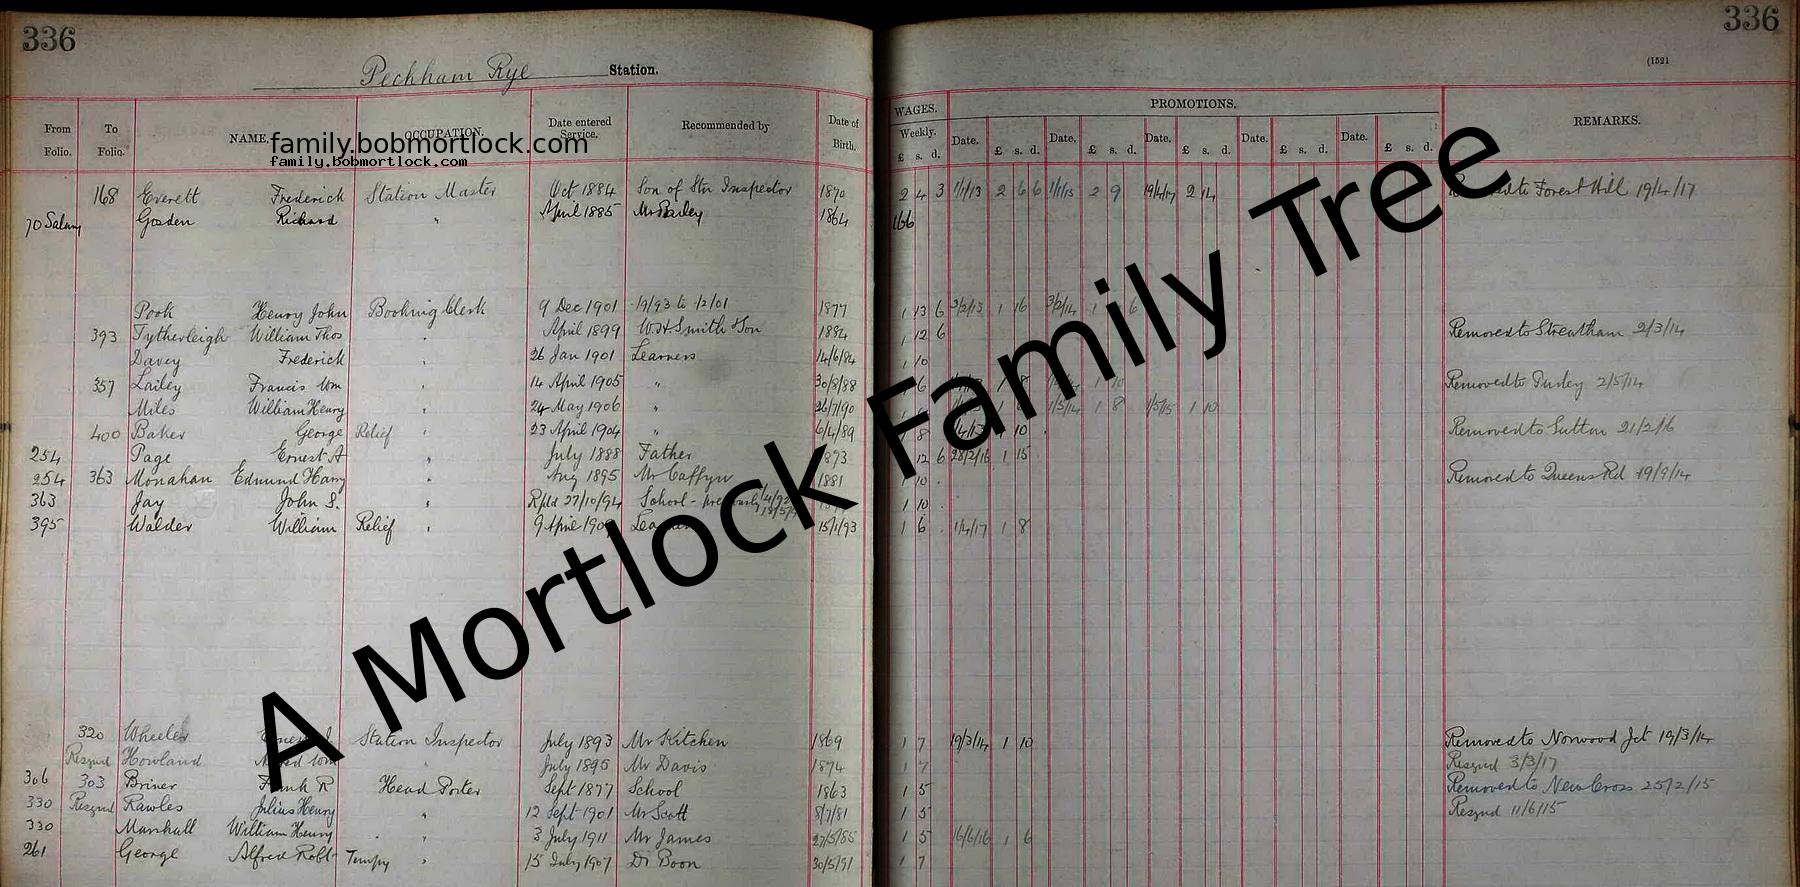 336 336
Peckham Rye Station.
(1521
From Folio. To Folio. NAME. OCCUPATION. Date entered Service. Recommended by Date of Birth. WAGES. Weekly. £ s. d. PROMOTIONS. Date. £ s. d. Date. £ s. d. Date. £ s. d. Date. £ s. d. Date. £ s. d. REMARKS.
family.bobmortlock.com
family.bobmortlock.com
168 Everett Frederick Station Master Oct 1884 Son of Stn Inspector 1870 2 4 3 1/1/13 2 6 6 1/1/15 2 9 19/4/17 2 14 to Forest Hill 19/4/17
70 Salary Gosden Richard " April 1885 Mr Bailey 1864 166
Pook Henry John Booking Clerk 9 Dec 1901 19/93 to 12/01 1877 1 13 6 3/2/13 1 16 3/2/14 1 6
393 Tytherleigh William Thos " April 1899 WH Smith & Son 1884 1 12 6 Removed to Streatham 2/3/14
Davey Frederick " 26 Jan 1901 Learners 14/6/84 1 10
357 Lailey Francis Wm " 14 April 1905 " 30/8/88 6 1 8 1 10 Removed to 2/5/14
Miles William Henry " 24 May 1906 " 26/7/90 1 1/5/14 1 8 1/5/15 1 10
400 Baker George Relief " 23 April 1904 " 6/4/89 8 1/4/13 10 Removed to Sutton 21/2/16
254 Page Ernest A " July 1888 Father 1873 12 6 28/2/16 1 15
254 363 Monahan Edmund Harry " Aug 1895 Mr Caffyn 1881 1 10 Removed to Queens Rd 19/9/14
363 Jay John S. " Rptd 27/10/94 School - previously 1 10
395 Walder William Relief " 9 April 15/1/93 1 6 1/4/17 1 8
A Mortlock Family Tree
320 Wheeler Station Inspector July 1893 Mr Kitchen 1869 1 7 19/3/14 1 10 Removed to Norwood Jct 19/3/14
Resgnd Howland Wm " July 1895 Mr Davis 1874 1 7 Resgnd 3/3/17
306 303 Briner Frank R Head Porter Sept 1877 School 1863 1 5 Removed to New Cross 25/2/15
330 Resgnd Rawles Julius Henry " 12 Sept 1901 Mr Scott 8/7/81 1 5 Resgnd 11/6/15
330 Marshall William Henry " 3 July 1911 Mr James 27/5/85 1 5 16/6/16 1 6
261 George Alfred Robt Tempy " 15 July 1907 Dr Boon 30/5/91 1 7